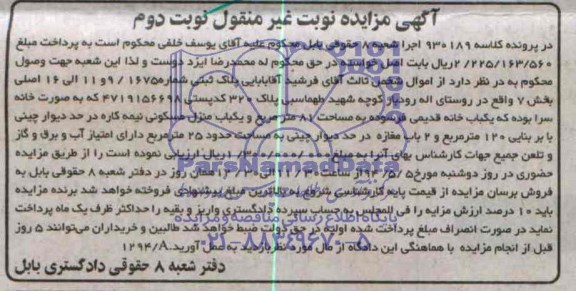 آگهی مزایده نوبت غیر منقول نوبت دوم
در پرونده کلاسه ۹۳۰۱۸۹ اجرا شعبه ۸ حقوقی بابل محکوم علیه آقای یوسف خلفی محکوم است به پرداخت مبلغ
۲/۲۲۵/۱۶۳/۵۶۰ ریال بابت اصل خواسته در حق محکوم له محمدرضا ایزد دوست و لذا این شعبه جهت وصول
محکوم به در نظر دارد از اموال شخص ثالث آقای فرشید آقابابایی پلاک ثبتی شماره ۱۶۷۵ / ۹ و ۱۱ الی ۱۶ اصلی
بخش ۷ واقع در روستای اله رودبار کوچه شهید طهماسبی پلاک ۳۲۰ کدپستی ۴۷۱۹۱۵۶۶۹۸ که به صورت خانه
سرا بوده که یکباب خانه قدیمی فرسوده به مساحت ۸۱ متر مربع و یکباب منزل مسکونی نیمه کاره در حد دیوار چینی
با بر بنایی ۱۲۰ مترمربع و ۲ باب مغازه در حد دیوار چینی به مساحت حدود ۲۵ مترمربع دارای امتیاز آب و برق و گاز
و تلفن جمیع جهات کارشناس بهای آنرا به مبلغ ریال ارزیابی نموده است را از طریق مزایده
حضوری در روز دوشنبه مورخ ۹۴/۵/ از ساعت الی همان روز در دفتر شعبه ۸ حقوقی بابل به
فروش برسان مزایده از قیمت پایه کارشناسی شروع به بالاترین مبلغ پیشنهادی فروخته خواهد شد برنده مزایده
باید ۱۰ درصد ارزش مزایه را فی المجلس به حساب سپرده دادگستری واریز و بقیه را حداکثر ظرف یک ماه پرداخت
نماید در صورت انصراف مبلغ پرداخت شده اولیه در حق دولت ضبط خواهد شد طالبین و خریداران می‌توانند ۵ روز
قبل از انجام مزایده با هماهنگی این دادگاه از مال مورد نظر بازدید به عمل آورید. ۱۲۹۴/۸
دفتر شعبه ۸ حقوقی دادگستری بابل
ParsNamadData
پایگاه اطلاع رسانی مناقصه و مزایده
۰۲۱-۸۸۳۴۹۶۷۰-۵